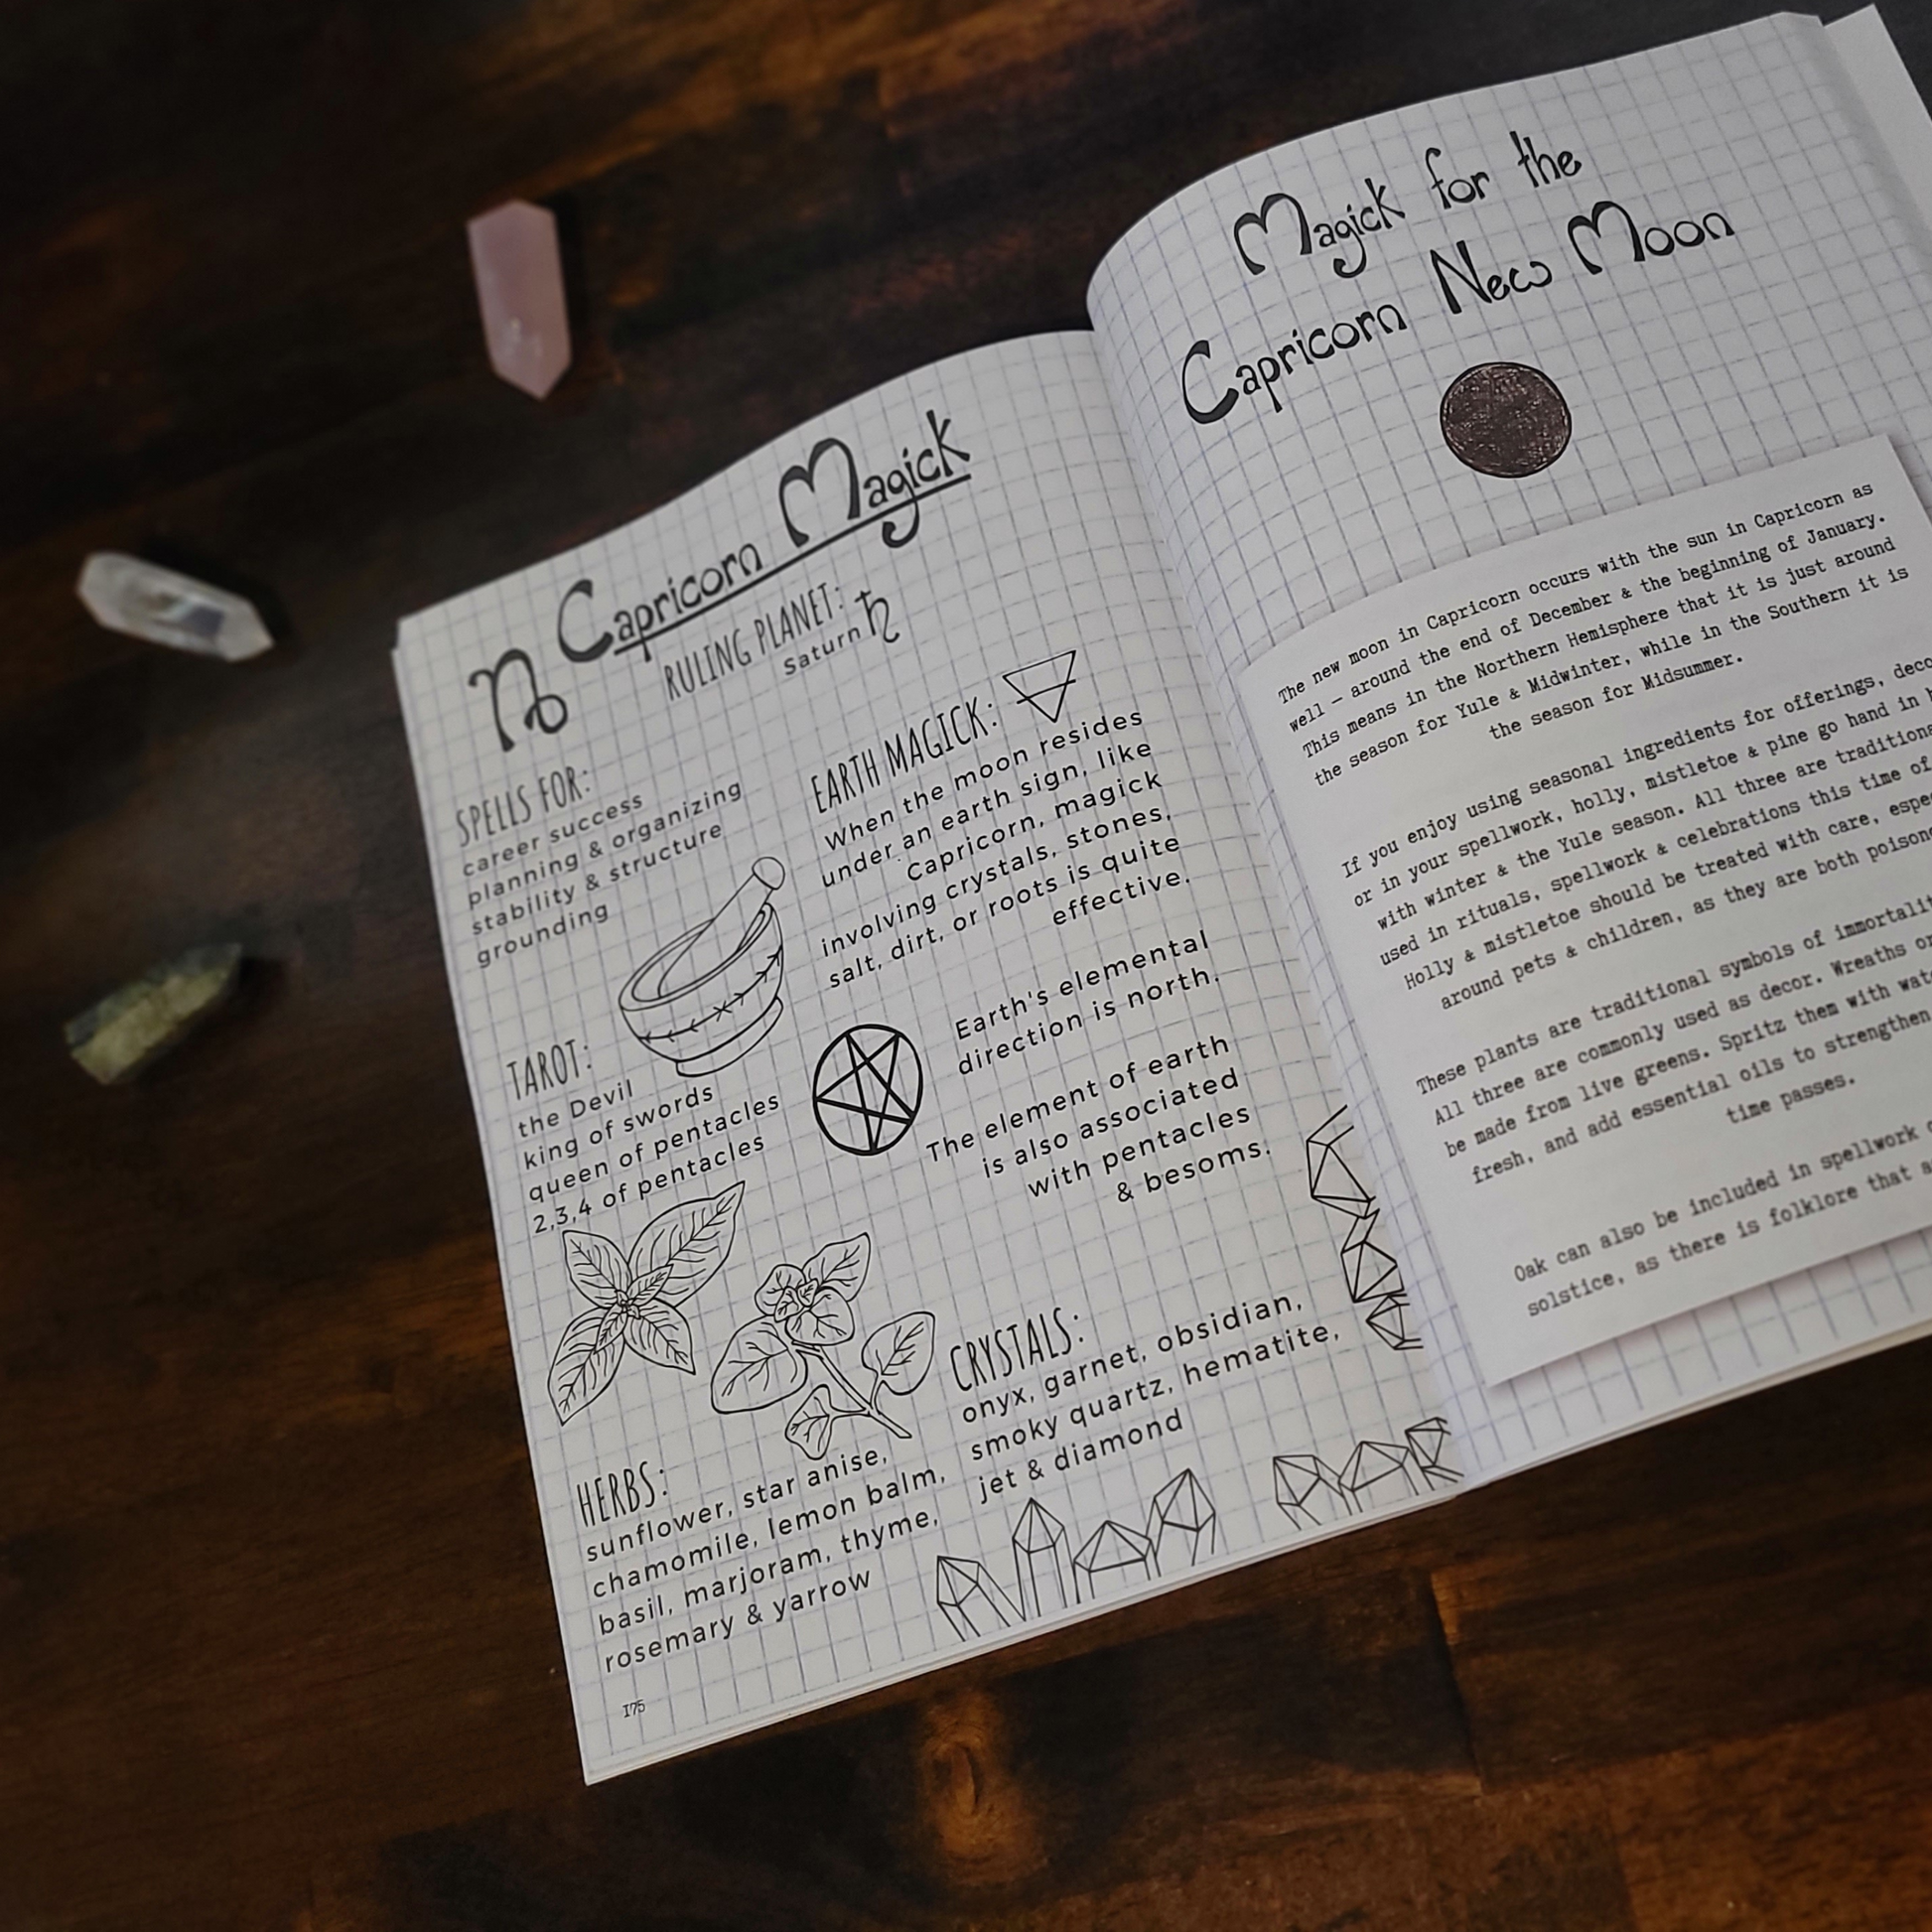 Capricorn Magick
RULING PLANET:
Saturn
SPELLS FOR:
career success
planning & organizing
stability & structure
grounding
TAROT:
the Devil
king of swords
queen of pentacles
2,3,4 of pentacles
HERBS:
sunflower, star anise,
chamomile, lemon balm,
basil, marjoram, thyme,
rosemary & yarrow
EARTH MAGICK:
When the moon resides
under an earth sign, like
Capricorn, magick
involving crystals, stones,
salt, dirt, or roots is quite
effective.
Earth's elemental
direction is north.
The element of earth
is also associated
with pentacles
& besoms.
CRYSTALS:
onyx, garnet, obsidian,
smoky quartz, hematite,
jet & diamond
175
Magick for the
Capricorn New Moon
The new moon in Capricorn occurs with the sun in Capricorn as
well — around the end of December & the beginning of January.
This means in the Northern Hemisphere that it is just around
the season for Yule & Midwinter, while in the Southern it is
the season for Midsummer.
If you enjoy using seasonal ingredients for offerings,
or in your spellwork, holly, mistletoe & pine go hand in
with winter & the Yule season. All three are
used in rituals, spellwork & celebrations this time of
Holly & mistletoe should be treated with care,
around pets & children, as they are both
These plants are traditional symbols of
All three are commonly used as decor. Wreaths
be made from live greens. Spritz them with
fresh, and add essential oils to strengthen
time passes.
Oak can also be included in spellwork
solstice, as there is folklore that